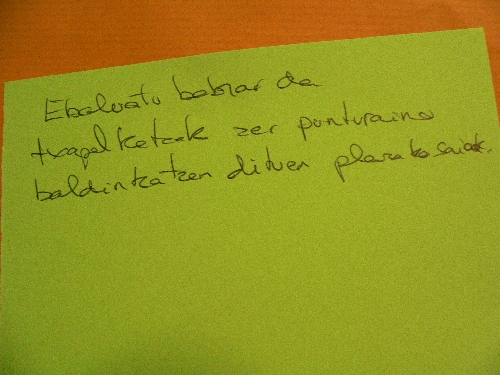 Ebaluatu behar da
txapelketak zer punturaino
baldintzatzen dituen plazako saioak.